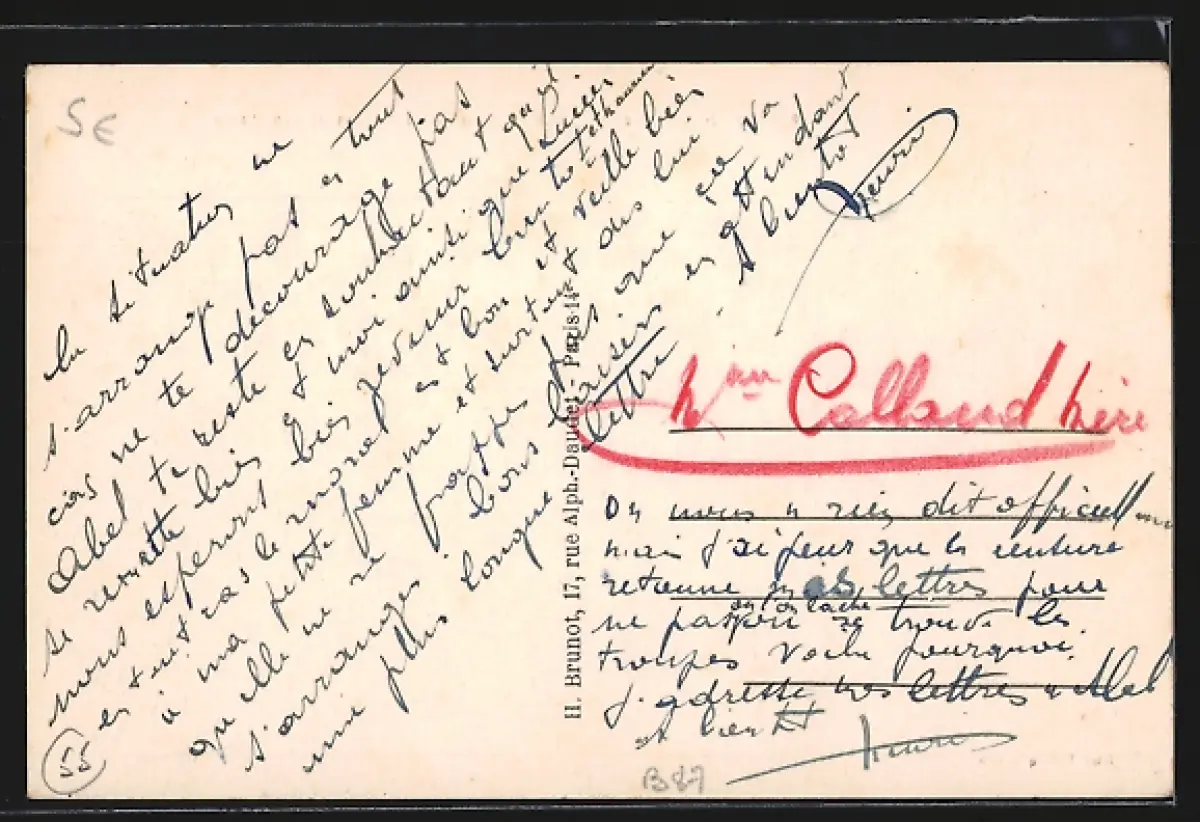 SE
La situation ne
s'arrange pas et tout
cias ne te décourage pas
Abel te reste en souhaitant qu'il
se remette bien et moi ainsi que Lucien
nous esperont bien revenir bientôt
en tout cas le moral est bon et veille bien
à ma petite femme et surtout dis lui
qu'elle ne se frappe pas que ça va
s'arranger bons baisers en attendant
une plus longue lettre A bientôt
Henri
55
H. Brunot, 17, rue Alph.-Daudet - Paris-14
Mme Calland Mère
On nous a rien dit officiellem
mais j'ai peur que la censure
retienne mes lettres pour
ne pas qu'on sache
où se trouve les
troupes voila pourquoi
j'adresse mes lettres a Abel
A bientôt
Henri
B87